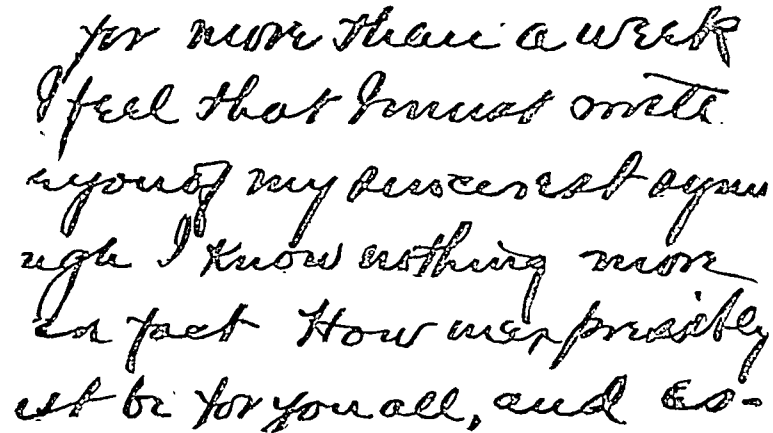 for more than a week
I feel that I must write
you of my sincerest sym
ugh I know nothing more
fact How inexpressibly
ust be for you all, and es-